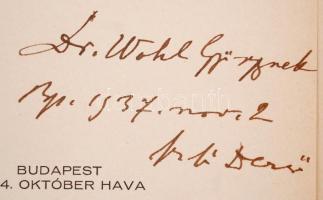 Dr. Wohl Györgynek
Bp. 1937. nov. 2
Dezső
BUDAPEST
4. OKTÓBER HAVA